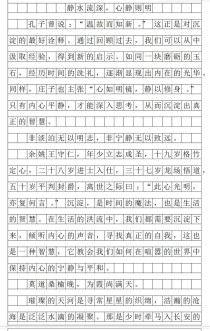 静水流深，心静则明
孔子曾说：“温故而知新。”这正是对沉
淀的最好诠释，通过回顾过去，我们可以从中
汲取经验，得到新的启示。如同一块磨砺的玉
石，经历时间的洗礼，逐渐显现出内在的光华
同样，庄子也主张“心如明镜，以静修身。”
只有内心平静，才能深入思考，从而沉淀出真
正的智慧。
非淡泊无以明志，非宁静无以致远。
余姚王守仁，年少立志成圣，十九岁格竹
定心，二十八岁进士入仕，三十七岁龙场悟道
五十岁平判封爵，离世之际曰：“此心光明，
亦复何言。”沉淀，是时间的魔法，也是生活
的智慧。在生活的洪流中，我们都需要沉淀下
来，倾听内心的声音，寻找真正的自我，这也
是一种智慧，它教会我们如何在喧嚣的世界中
保持内心的宁静与平和。
莫道桑榆晚，为霞尚满天。
璀璨的天河是寻常星星的织缩，浩瀚的沧
海是泛泛水滴的凝聚。那是少时牵马入长安的